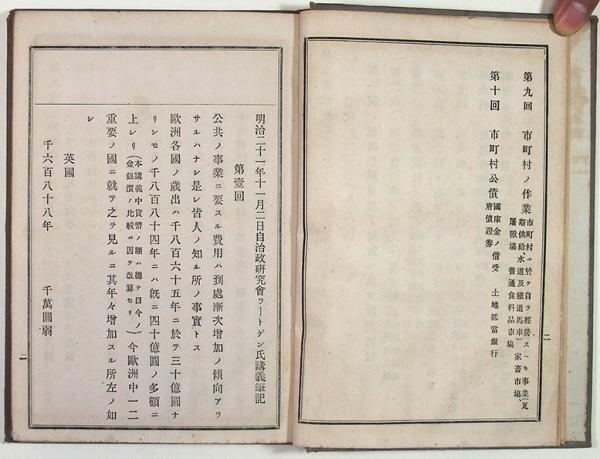 第九回　市町村ノ作業
市町村ニ於テ自ラ經營スヘキ事業(瓦
斯供給水道及鐵道馬車)家畜市場、
屠獸塲、普通食料品市塲
第十回　市町村公債
國庫金ノ借受　土地抵當銀行
府債證券
二
明治二十一年十一月二日自治政研究會ラートゲン氏講義筆記
第壹回
公共ノ事業ニ要スル費用ハ到處漸次增加ノ傾向アラ
サルハナシ是レ皆人ノ知ル所ノ事實トス
歐洲各國ノ歲出ハ千八百六十五年ニ於テ三十億圓ナ
リシモノ千八百八十四年ニハ既ニ四十億圓ノ多額ニ
上レリ(本講義中貨幣ノ額ハ總テ目今ノ金銀價ノ比較ニ因テ改算セリ)今歐洲中一二
重要ノ國ニ就テ之ヲ見ルニ其年々增加スル所左ノ如
シ
英國
千六百八十八年　千萬圓弱
一